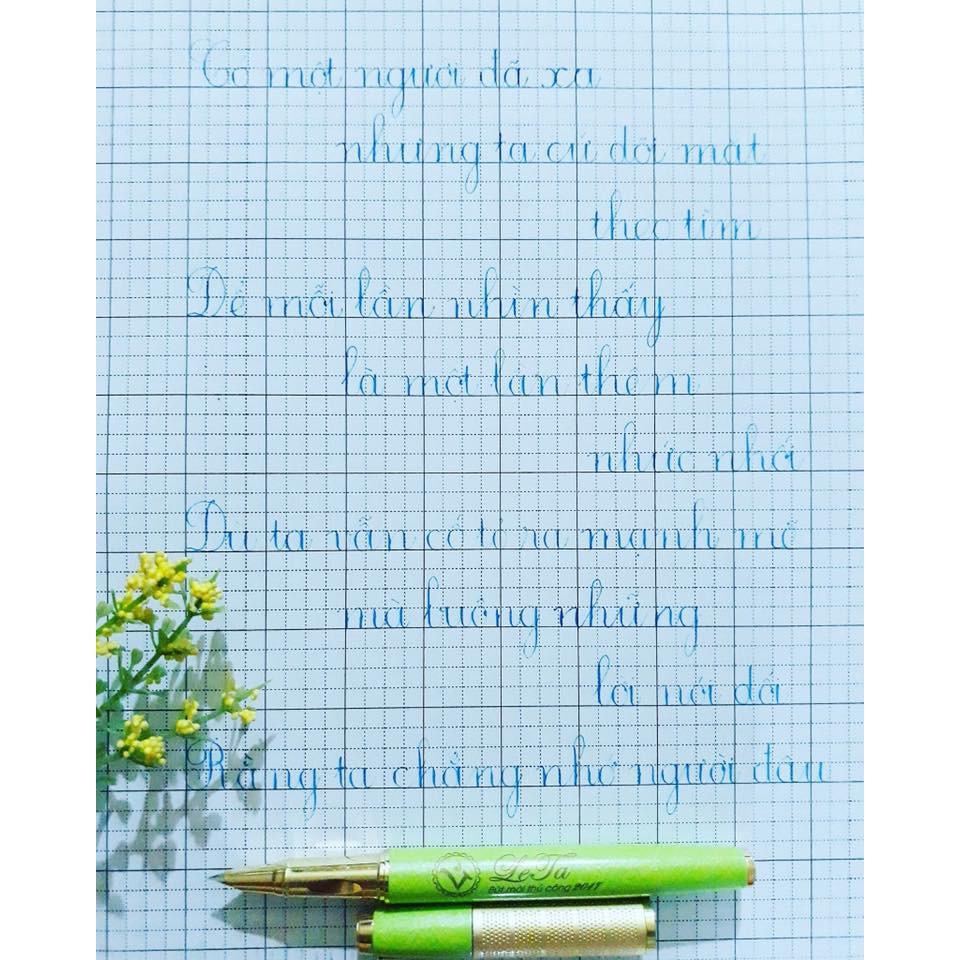 Có một người đã xa
nhưng ta cứ dõi mắt
theo tìm
Để mỗi lần nhìn thấy
là một lần thêm
nhức nhối
Dù ta vẫn cố tỏ ra mạnh mẽ
mà buông những
lời nói dối
Rằng ta chẳng nhớ người đâu
LeTa
Bút mài thủ công 2017